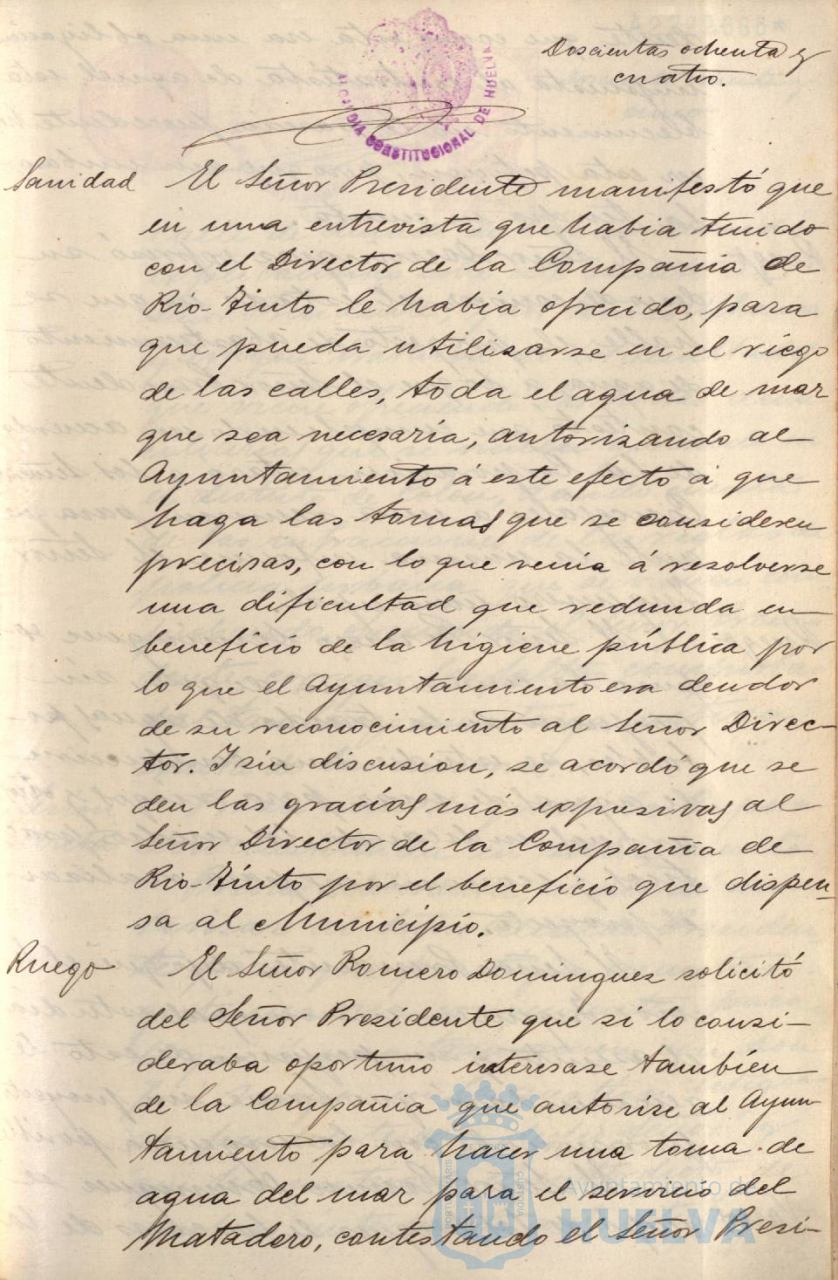 Doscientas ochenta y
cuatro.
ALCALDIA CONSTITUCIONAL DE HUELVA
Sanidad El Señor Presidente manifestó que
en una entrevista que habia tenido
con el Director de la Compañia de
Rio-Tinto le habia ofrecido, para
que pueda utilisarse en el riego
de las calles, toda el agua de mar
que sea necesaria, autorizando al
Ayuntamiento á este efecto á que
haga las tomas que se consideren
precisas, con lo que venia á resolverse
una dificultad que redunda en
beneficio de la higiene pública por
lo que el Ayuntamiento era deudor
de su reconocimiento al Señor Direc-
tor. I sin discusion, se acordó que se
den las gracias más expresivas al
Señor Director de la Compañia de
Rio-Tinto por el beneficio que dispen-
sa al Municipio.
Ruego El Señor Romero Dominguez solicitó
del Señor Presidente que si lo consi-
deraba oportuno interesase también
de la Compañia que autorise al Ayun-
tamiento para hacer una toma de
agua del mar para el servicio del
Matadero, contestando el Señor Presi-
Ayuntamiento de
HUELVA